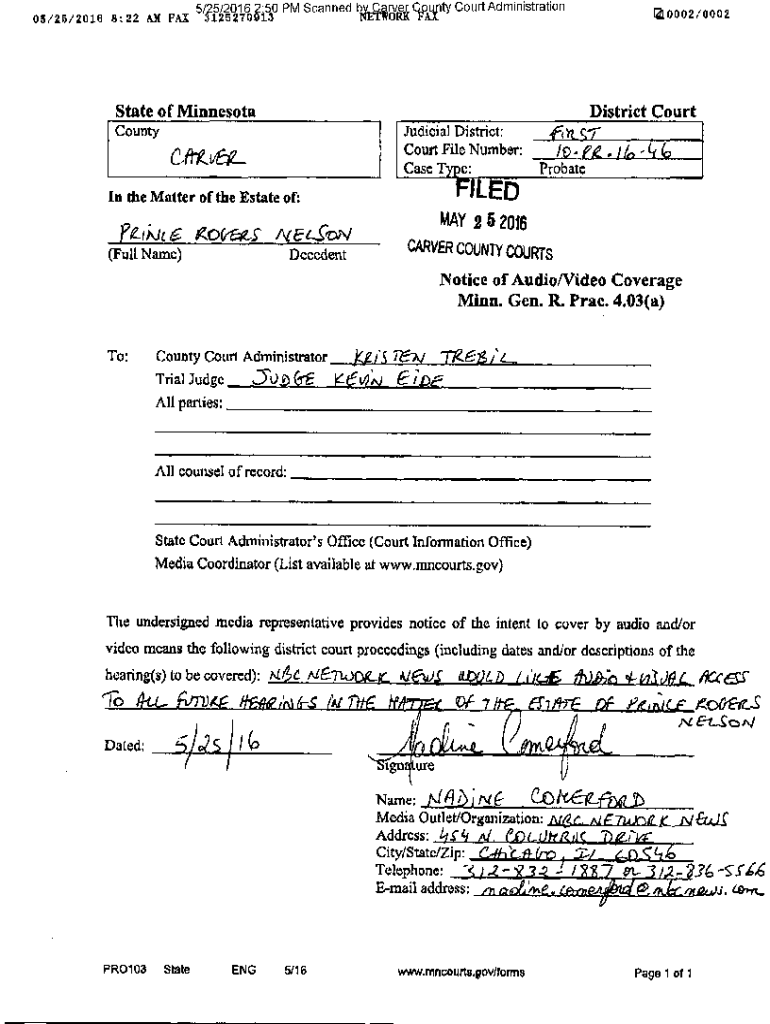 5/25/2016 2:50 PM Scanned by Carver County Court Administration
05/25/2016 8:22 AM FAX 3125270913 NETWORK FAX 0002/0002
State of Minnesota District Court
County
CARVER
Judicial District: FIRST
Court File Number: 10-PR-16-46
Case Type: Probate
In the Matter of the Estate of:
FILED
MAY 25 2016
CARVER COUNTY COURTS
PRINCE ROGERS NELSON
(Full Name) Decedent
Notice of Audio/Video Coverage
Minn. Gen. R. Prac. 4.03(a)
To: County Court Administrator KRISTEN TREBIL
Trial Judge JUDGE KEVIN EIDE
All parties:
All counsel of record:
State Court Administrator's Office (Court Information Office)
Media Coordinator (List available at www.mncourts.gov)
The undersigned media representative provides notice of the intent to cover by audio and/or
video means the following district court proceedings (including dates and/or descriptions of the
hearing(s) to be covered): NBC NETWORK NEWS WOULD LIKE AUDIO + VISUAL ACCESS
TO ALL FUTURE HEARINGS IN THE MATTER OF THE ESTATE OF PRINCE ROGERS
NELSON
Dated: 5/25/16 Nadine Comerford
Signature
Name: NADINE COMERFORD
Media Outlet/Organization: NBC NETWORK NEWS
Address: 454 N. COLUMBUS DRIVE
City/State/Zip: CHICAGO, IL 60546
Telephone: 312-832-1887 or 312-836-5566
E-mail address: nadine.comerford@nbcnews.com
PRO103 State ENG 5/16 www.mncourts.gov/forms Page 1 of 1